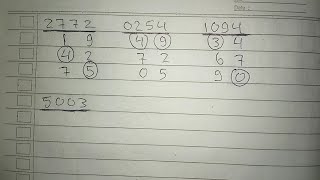 Date :
2772 0254 1094
1 9 4 9 3 4
4 2 7 2 6 7
7 5 0 5 9 0
5003